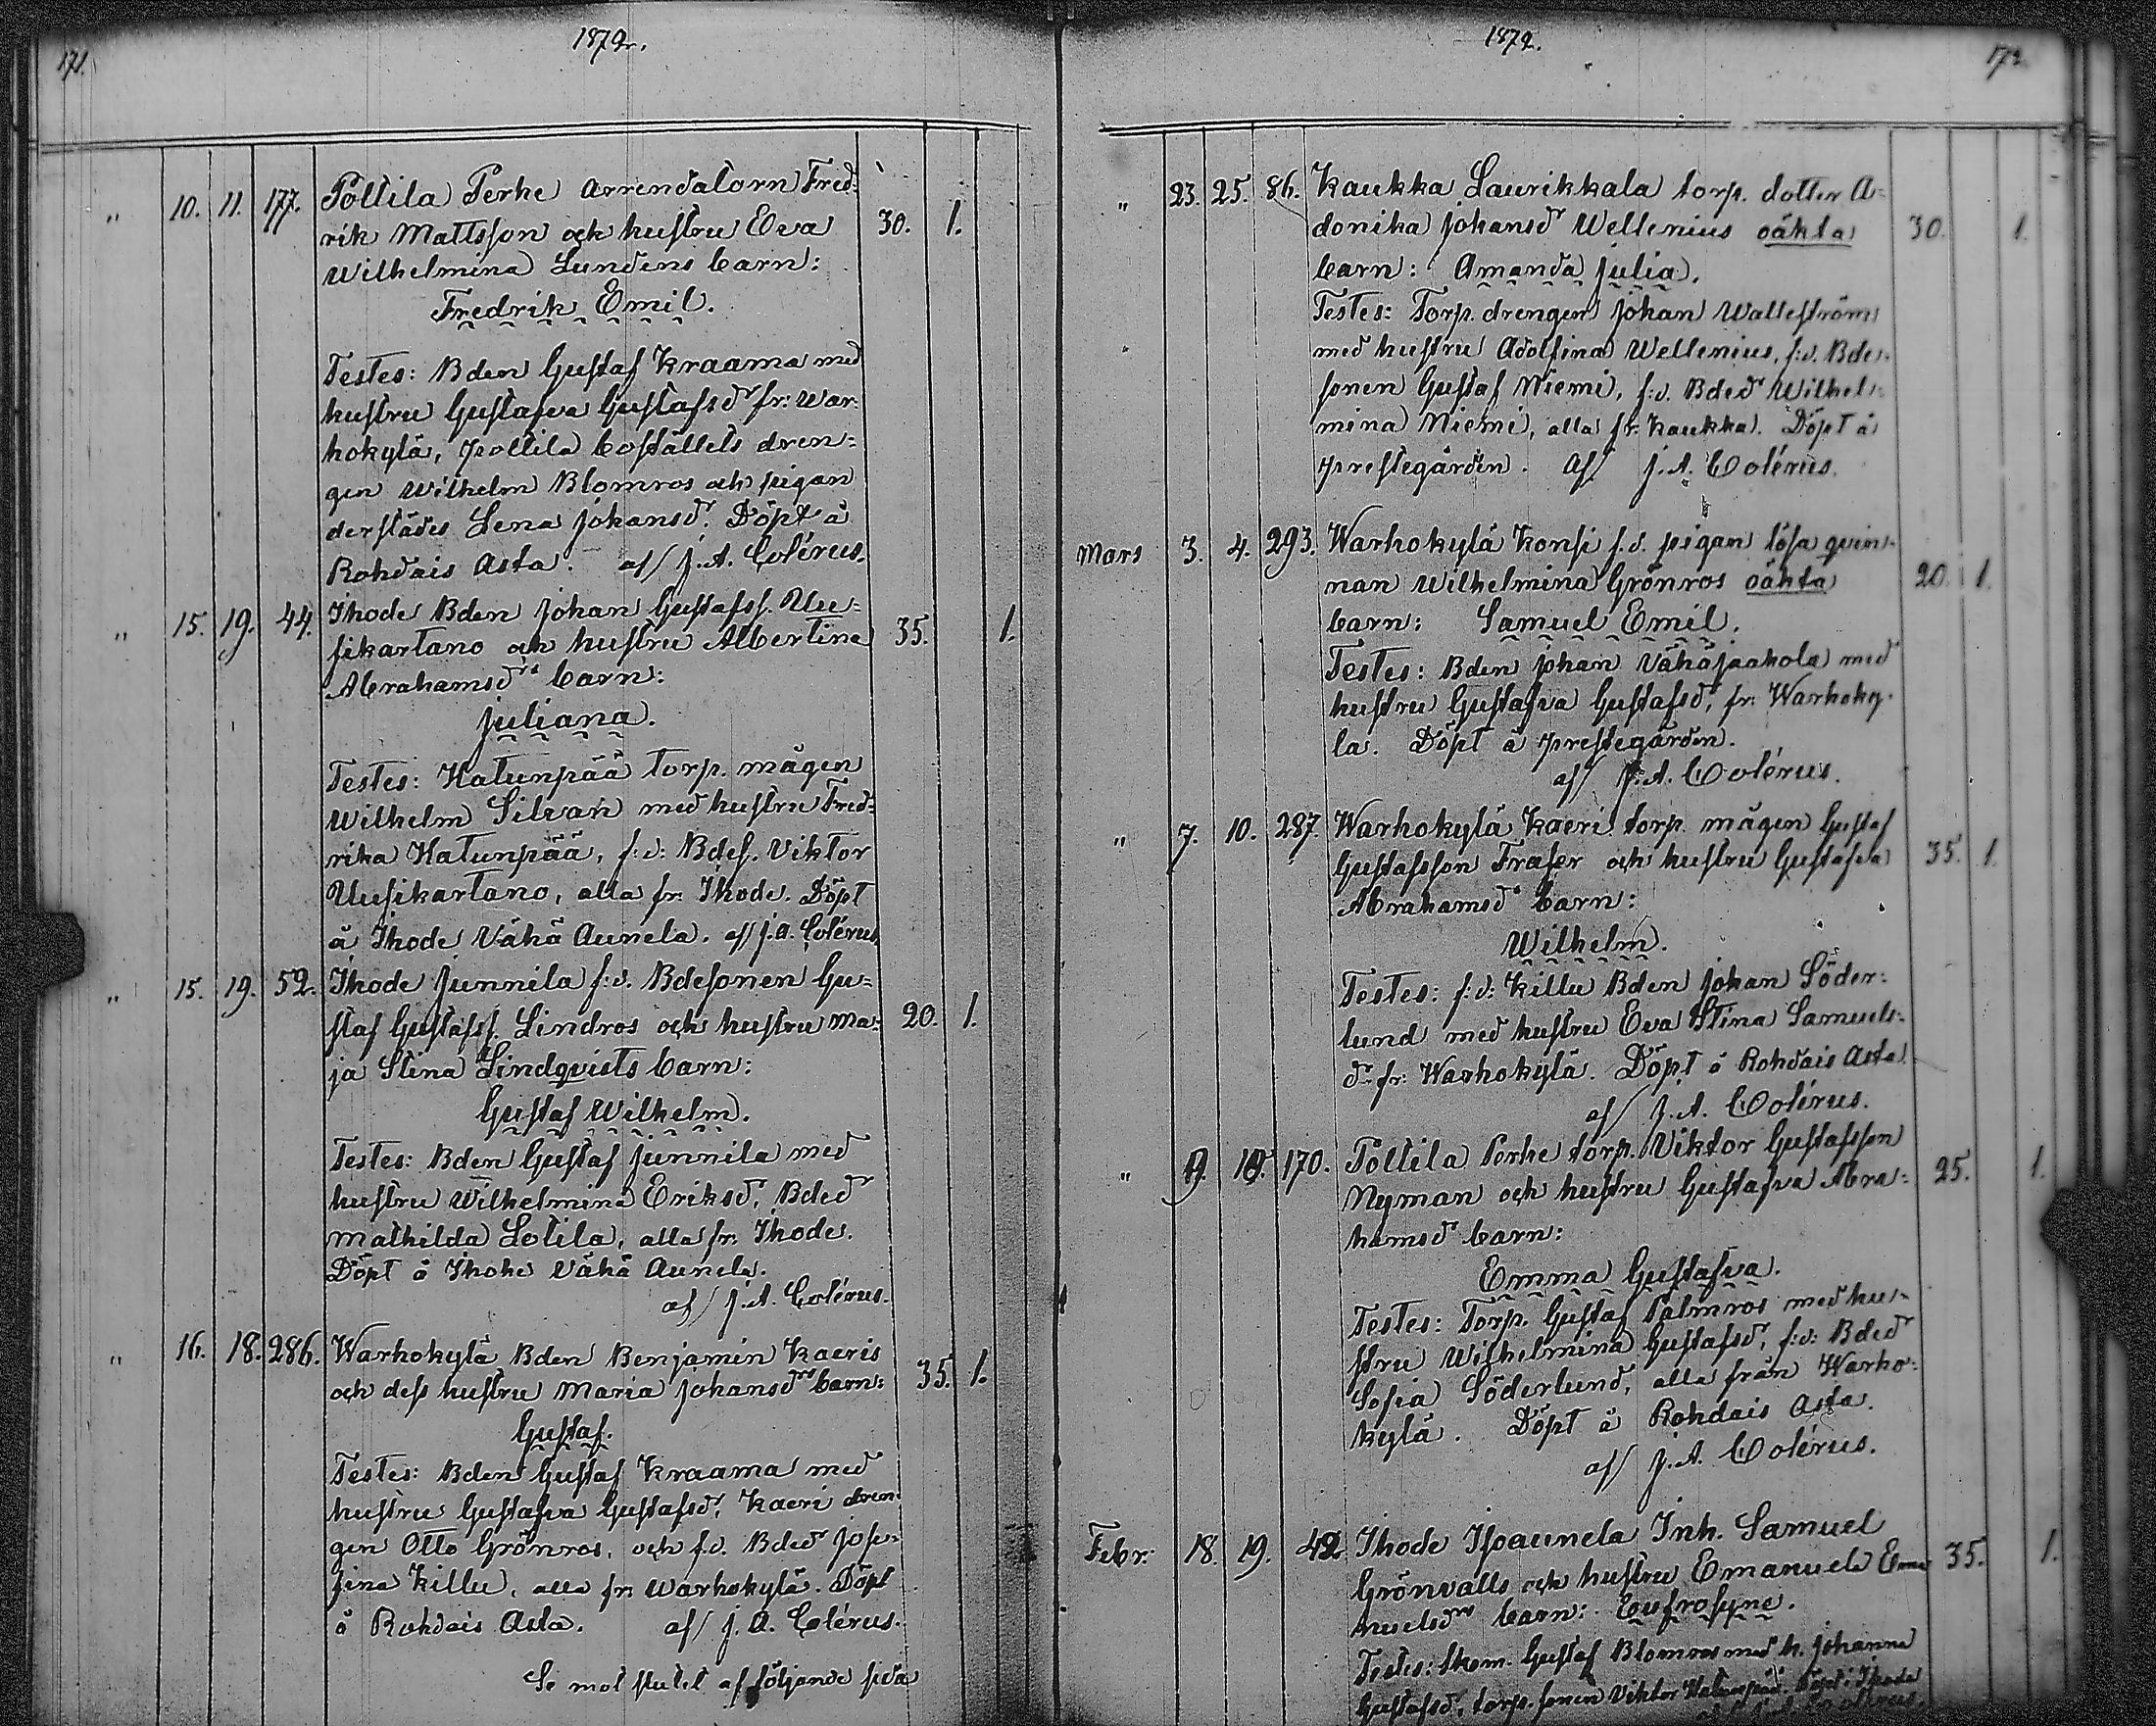 171.
1872.
" 10. 11. 177. Poltila Perhe Arrendatorn Fred-
rik Mattsson och hustru Eva 30. 1.
Wilhelmina Lundens barn:
Fredrik Emil.
Testes: Bden Gustaf Kraama med
hustru Gustafva Gustafsdr fr: War-
hokylä, Poltila boställets dren-
gen Wilhelm Blomros och pigan
derstädes Lena Johansdr. Döpt å
Rohdais Asta. af/ J. A. Colérus.
" 15. 19. 44. Ihode Bden Johan Gustafss. Uu-
sikartano och hustru Albertina 35. 1.
Abrahamsdrs barn:
Juliana.
Testes: Katunpää torp. mågen
Wilhelm Silvan med hustru Fred-
rika Katunpää, f:d: Bdes. Viktor
Uusikartano, alla fr. Ihode. Döpt
å Ihode Vähä Aunela. af/ J. A. Colérus
" 15. 19. 52. Ihode Junnila f:d. Bdesonen Gu-
staf Gustafss. Lindros och hustru Ma- 20. 1.
ja Stina Lindqvists barn:
Gustaf Wilhelm.
Testes: Bden Gustaf Junnila med
hustru Wilhelmina Eriksdr, Bdedr
Mathilda Lotila, alla fr. Ihode.
Döpt å Ihohe Vähä Aunela.
af/ J. A. Colérus.
" 16. 18. 286. Warhokylä Bden Benjamin Kaeris
och dess hustru Maria Johansdrs barn: 35. 1.
Gustaf.
Testes: Bden Gustaf Kraama med
hustru Gustafva Gustafsdr, Kaeri dren-
gen Otto Grönros, och f.d. Bdedr Jose-
fina Killu, alla fr. Warhokylä. Döpt
å Rohdais Asta. af/ J. A. Colérus.
Se mot slutet af följande sida
1872.
172
" 23. 25. 86. Kaukka Laurikkala torp. dotter A-
donika Johansdr Wellenius oäkta 30. 1.
barn: Amanda Julia.
Testes: Torp. drengen Johan Walleström
med hustru Adolfina Wellenius, f:d. Bde-
sonen Gustaf Niemi, f:d. Bdedr Wilhel-
mina Niemi, alla fr. Kaukka. Döpt å
Prestegården. af/ J. A. Colérus.
Mars 3. 4. 293. Warhokylä Konsi f.d. pigan lösa qvin-
nan Wilhelmina Grönros oäkta 20. 1.
barn: Samuel Emil.
Testes: Bden Johan Vähäjaakola med
hustru Gustafva Gustafsdr, fr: Warhoky-
la. Döpt å Prestegården.
af/ J. A. Colérus.
" 7. 10. 287. Warhokylä Kaeri torp. mågen Gustaf
Gustafsson Fraser och hustru Gustafva 35. 1.
Abrahamsdrs barn:
Wilhelm.
Testes: f:d: Killu Bden Johan Söder-
lund med hustru Eva Stina Samuels-
dr fr: Warhokylä. Döpt å Rohdais Asta
af/ J. A. Colérus.
" 9. 10. 170. Poltila Perhe torp. Viktor Gustafsson
Nyman och hustru Gustafva Abra- 25. 1.
hamsdr barn:
Emma Gustafva.
Testes: Torp. Gustaf Palmros med hu-
stru Wilhelmina Gustafsdr, f:d: Bdedr
Sofia Söderlund, alla från Warho-
kylä. Döpt å Rohdais Asta.
af/ J. A. Colérus.
Febr. 18. 19. 42. Ihode Isoaunela Inh. Samuel
Grönvalls och hustru Emanuela Ema 35. 1.
nuelsdrs barn: Eufrosyne.
Testes: Skom. Gustaf Blomros med h. Johanna
Gustafsdr, torp. sonen Viktor Katunpää. Döpt i Ihode